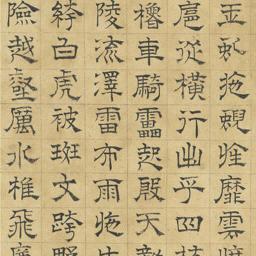 玉虬拖蜺旌靡雲旗
扈從橫行出乎四校
櫓車騎靁起殷天動
陵流澤雷布雨施生
絝白虎被斑文跨野
險越壑厲水椎飛廉